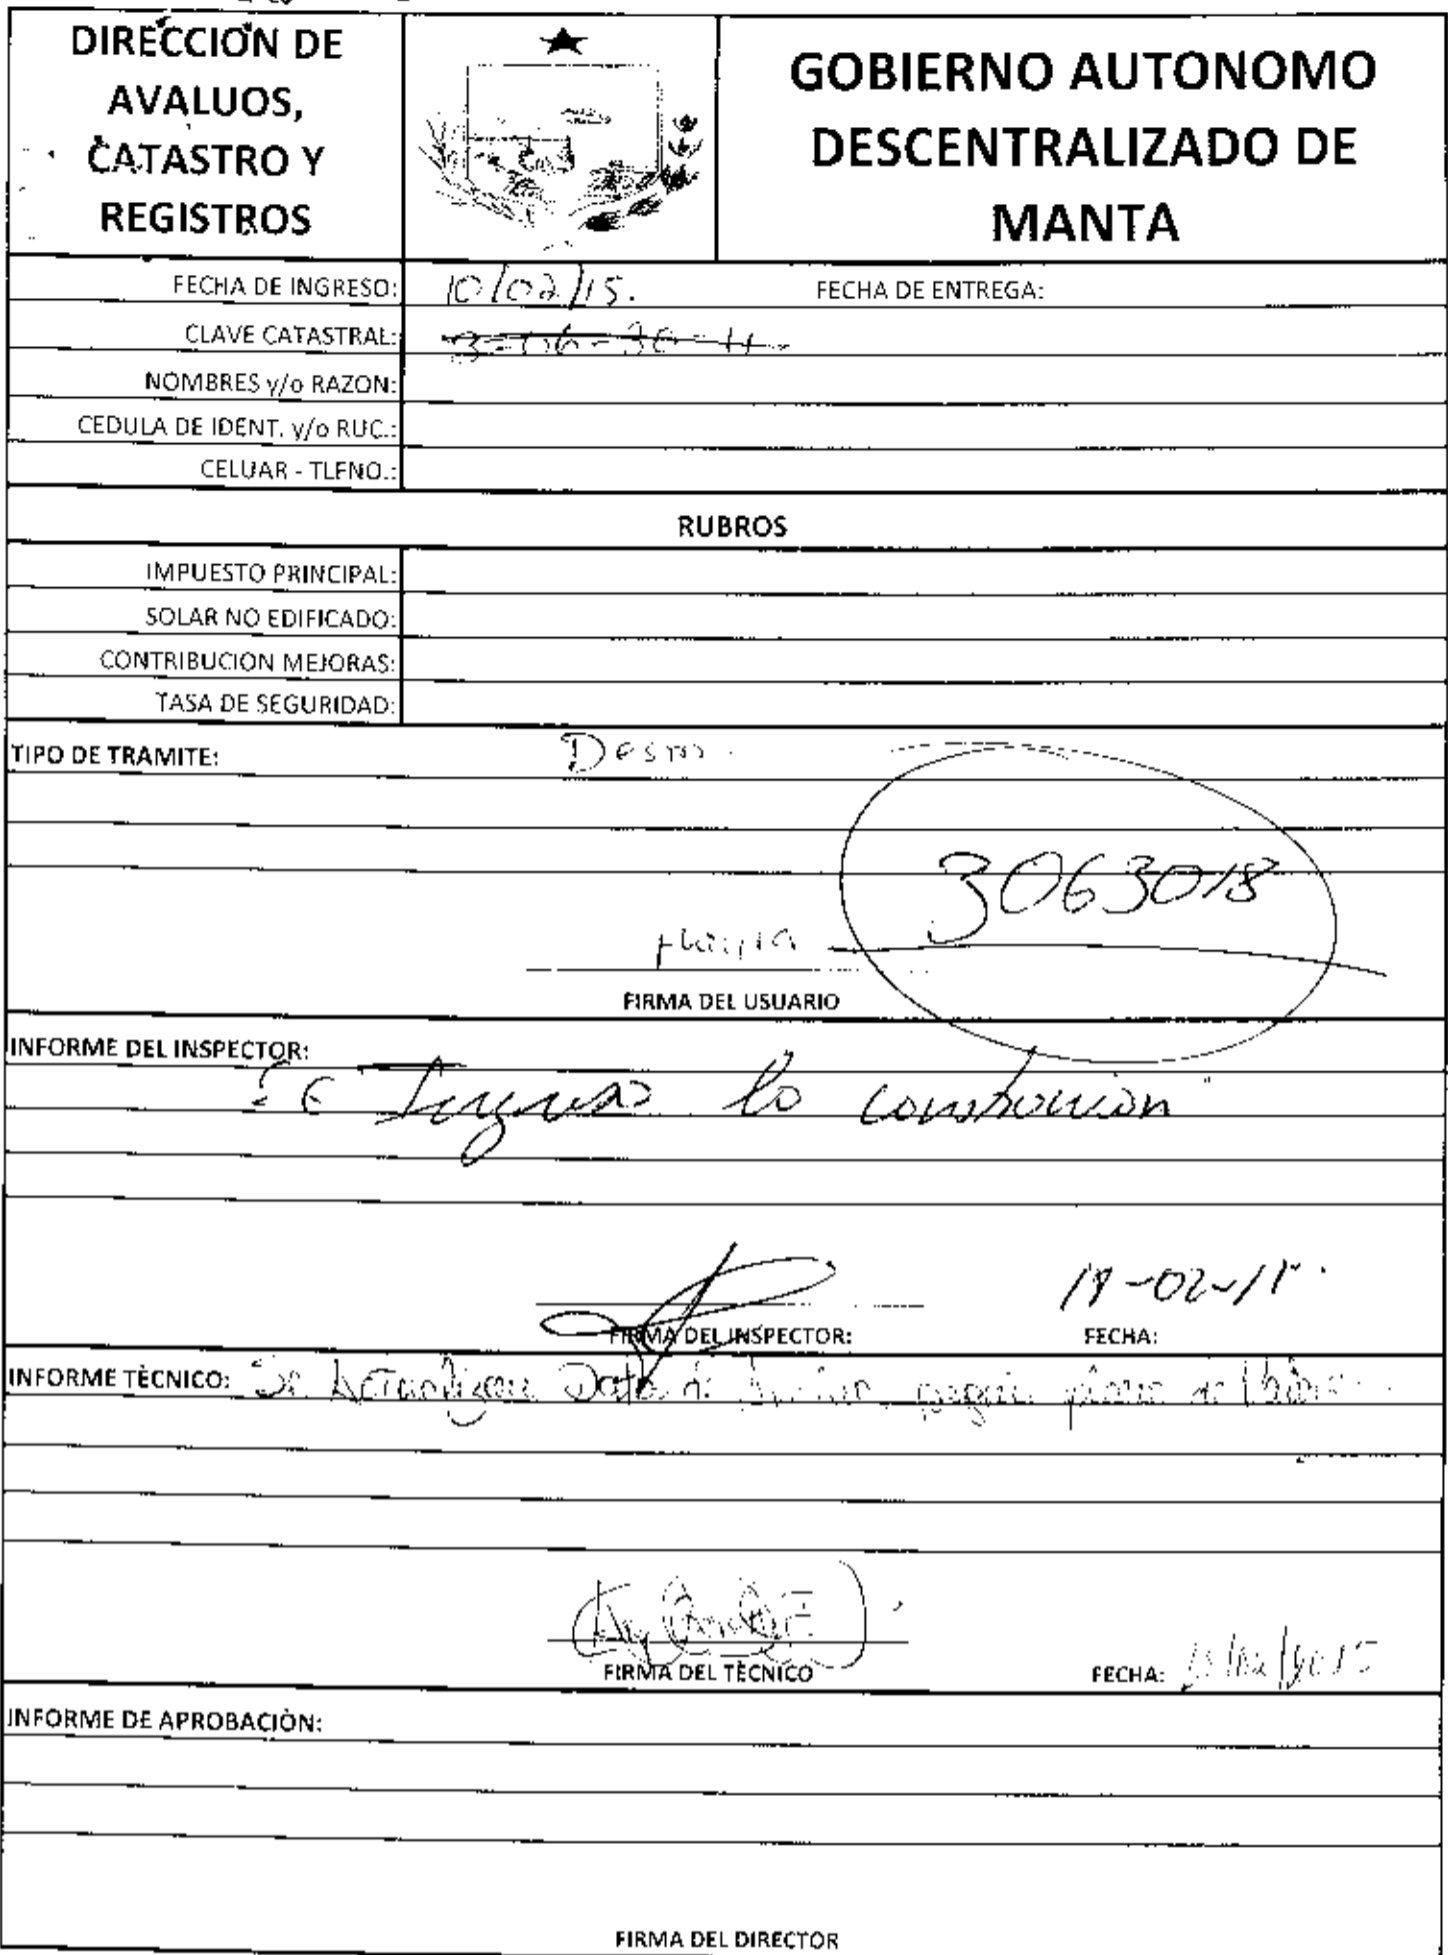 DIRECCION DE
AVALUOS,
CATASTRO Y
REGISTROS
GOBIERNO AUTONOMO
DESCENTRALIZADO DE
MANTA
FECHA DE INGRESO: 10/02/15. FECHA DE ENTREGA:
CLAVE CATASTRAL: 3-06-30-11
NOMBRES y/o RAZON:
CEDULA DE IDENT. y/o RUC.:
CELUAR - TLFNO.:
RUBROS
IMPUESTO PRINCIPAL:
SOLAR NO EDIFICADO:
CONTRIBUCION MEJORAS:
TASA DE SEGURIDAD:
TIPO DE TRAMITE: Desm.
3063018
FIRMA DEL USUARIO
INFORME DEL INSPECTOR:
construcion
FIRMA DEL INSPECTOR: FECHA:
INFORME TÈCNICO: Se
FIRMA DEL TÈCNICO FECHA:
INFORME DE APROBACIÒN:
FIRMA DEL DIRECTOR